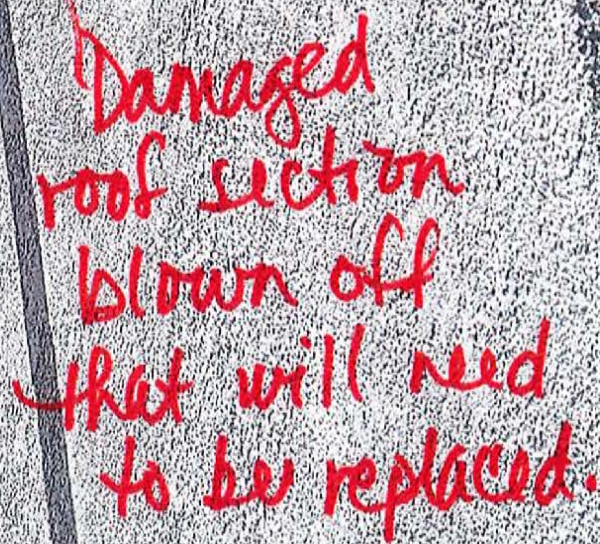 Damaged
roof section
blown off
that will need
to be replaced.